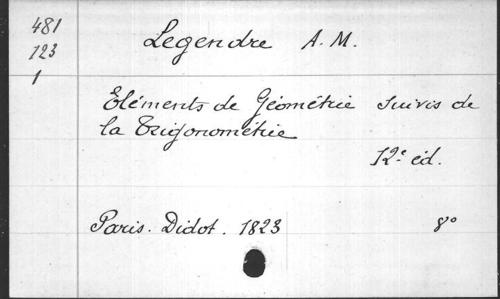 481
123
1
Legendre A. M.
Eléments de Géométrie suivis de
la Trigonométrie
12e éd.
Paris. Didot. 1823 8°